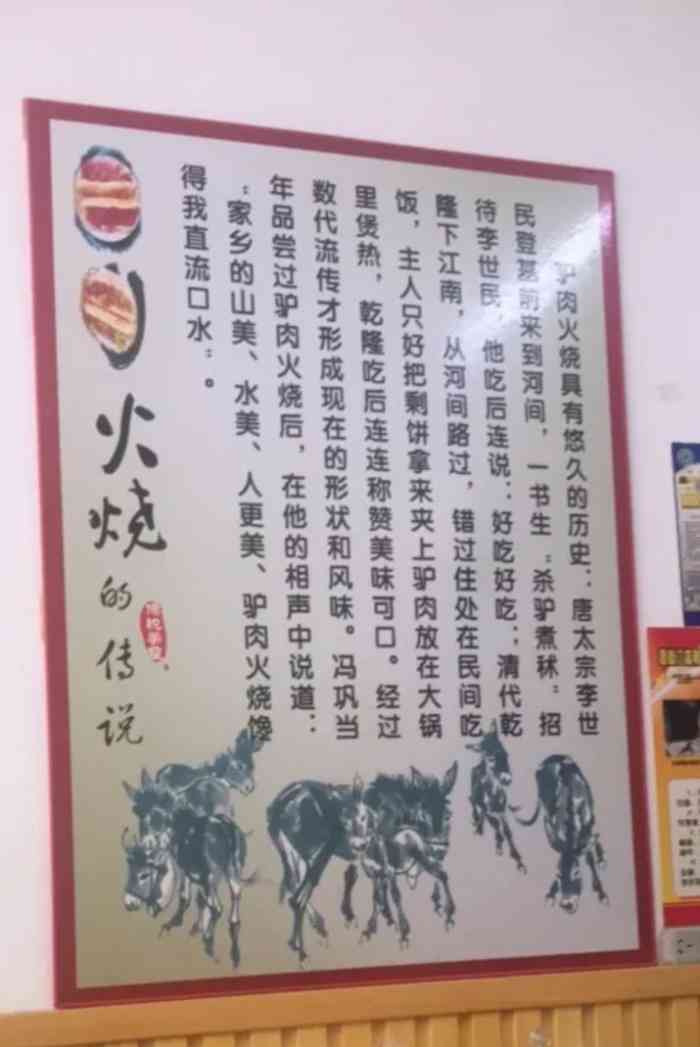 驴肉火烧具有悠久的历史：唐太宗李世
民登基前来到河间，一书生“杀驴煮秫”招
待李世民，他吃后连说：好吃好吃；清代乾
隆下江南，从河间路过，错过住处在民间吃
饭，主人只好把剩饼拿来夹上驴肉放在大锅
里煲热，乾隆吃后连连称赞美味可口。经过
数代流传才形成现在的形状和风味。冯巩当
年品尝过驴肉火烧后，在他的相声中说道：
“家乡的山美、水美、人更美、驴肉火烧馋
得我直流口水”。
火烧的传说